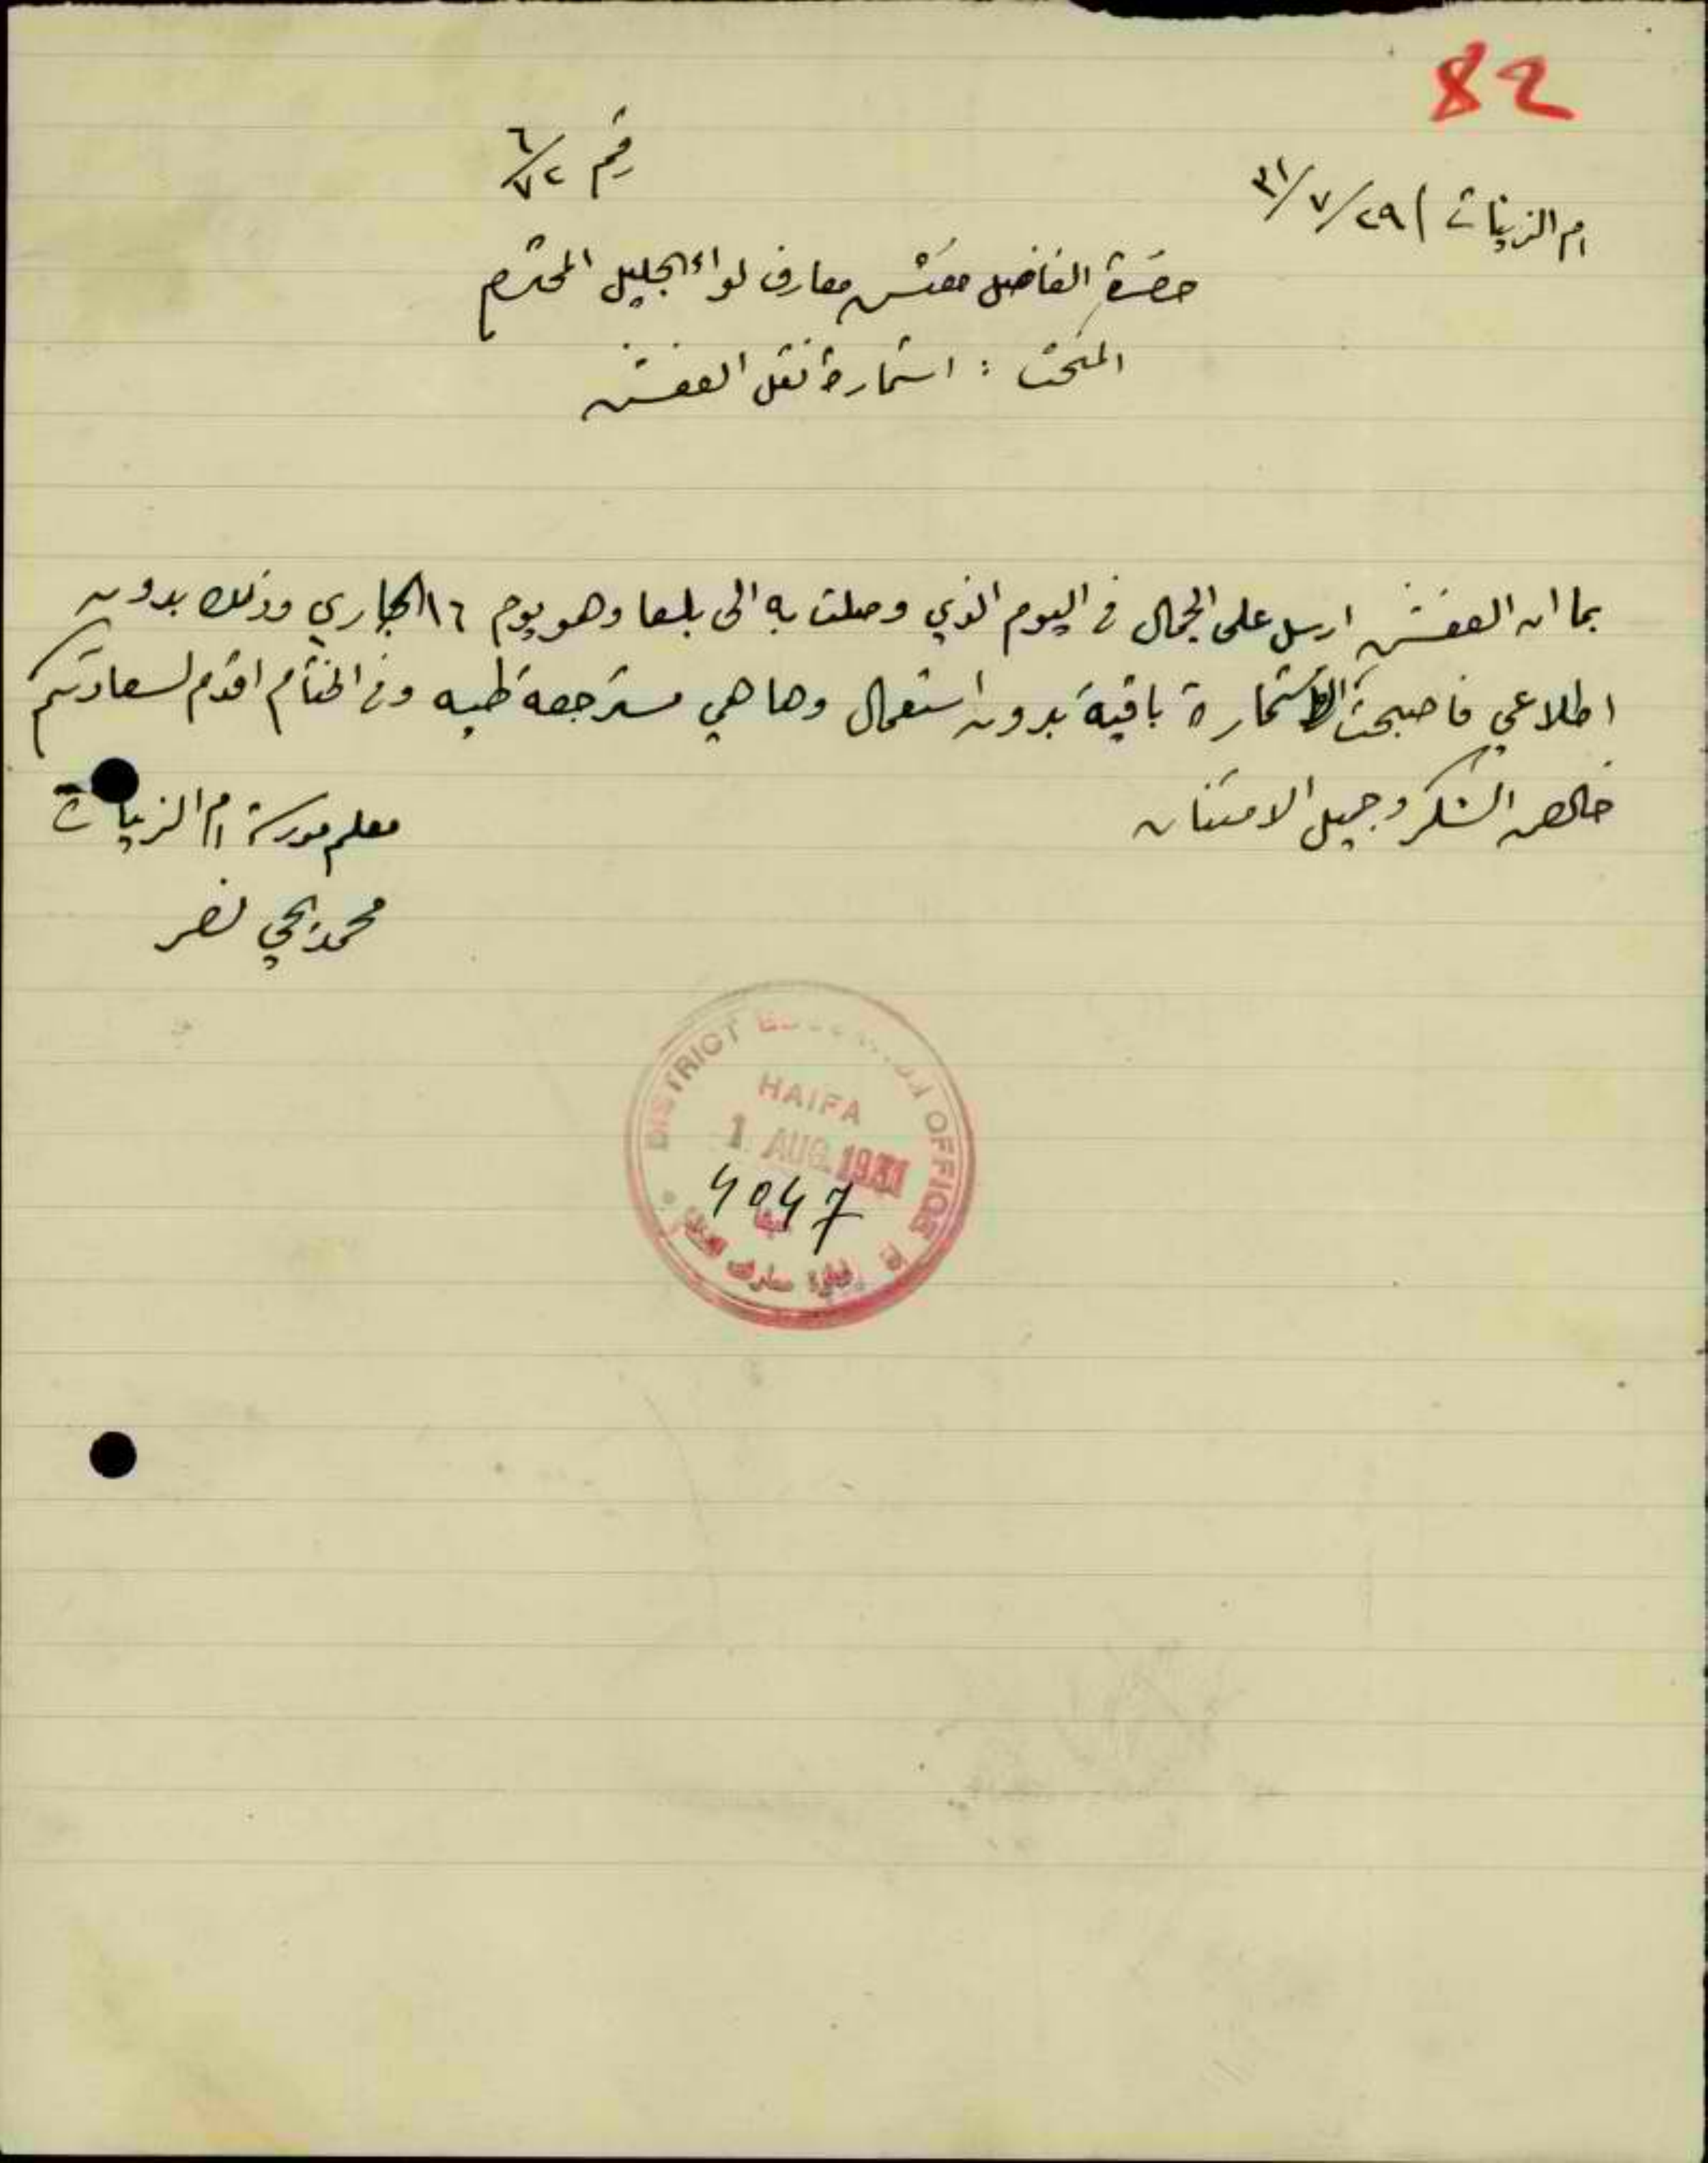 82
ام الزينات ٢٩/٧/٣١
رقم ٦/٧٢
حضرة الفاضل مفتش معارف لواء الجليل المحترم
المبحث : استمارة نقل العفش
بما ان العفش ارسل على الجمال في اليوم الذي وصلت به الى بلعا وهو يوم ١٦ الجاري وذلك بدون
اطلاعي فاصبحت الاستمارة باقية بدون استعمال وها هي مسترجعة طيه وفي الختام اقدم لسعادتكم
خالص الشكر وجميل الامتنان
معلم مدرسة ام الزينات
محمد يحي نصر
DISTRICT EDUCATION OFFICE
HAIFA
1 AUG. 1931
4047
ادارة معارف